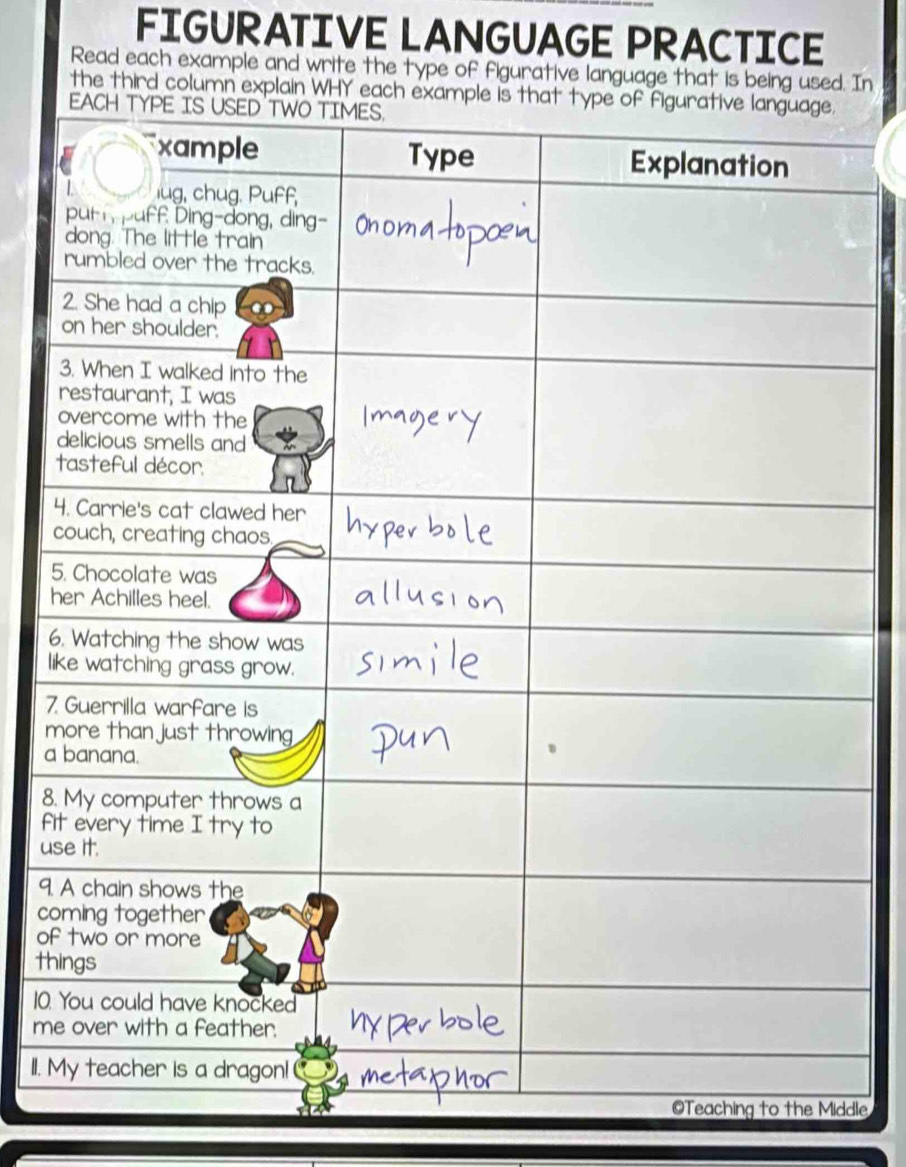 FIGURATIVE LANGUAGE PRACTICE
Read each example and write the type of figurative language that is being used. In
the third column explain WHY each example is that type of figurative language.
EACH TYPE IS USED TWO TIMES.
xample
Type
Explanation
1. ug, chug. Puff,
puff. Ding-dong, ding-
dong. The little train
rumbled over the tracks.
onomatopoeia
2. She had a chip
on her shoulder.
3. When I walked into the
restaurant, I was
overcome with the
delicious smells and
tasteful décor.
Imagery
4. Carrie's cat clawed her
couch, creating chaos.
hyperbole
5. Chocolate was
her Achilles heel.
allusion
6. Watching the show was
like watching grass grow.
simile
7. Guerrilla warfare is
more than just throwing
a banana.
pun
8. My computer throws a
fit every time I try to
use it.
9. A chain shows the
coming together
of two or more
things
10. You could have knocked
me over with a feather.
hyperbole
11. My teacher is a dragon!
metaphor
©Teaching to the Middle